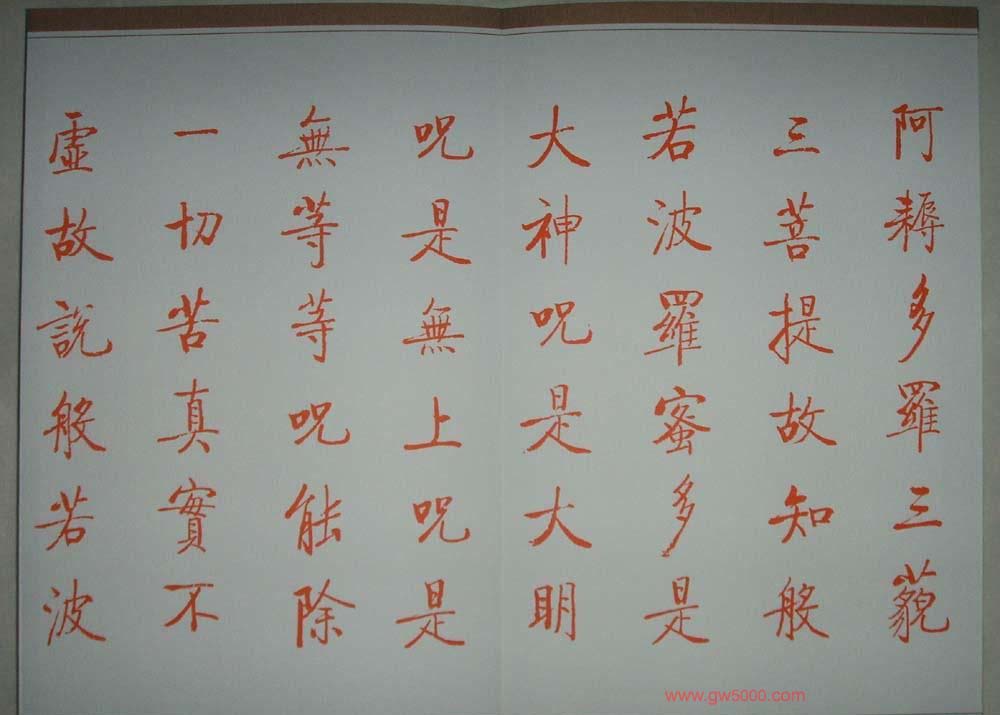 阿耨多羅三藐
三菩提故知般
若波羅蜜多是
大神呪是大明
呪是無上呪是
無等等呪能除
一切苦真實不
虛故說般若波
www.gw5000.com